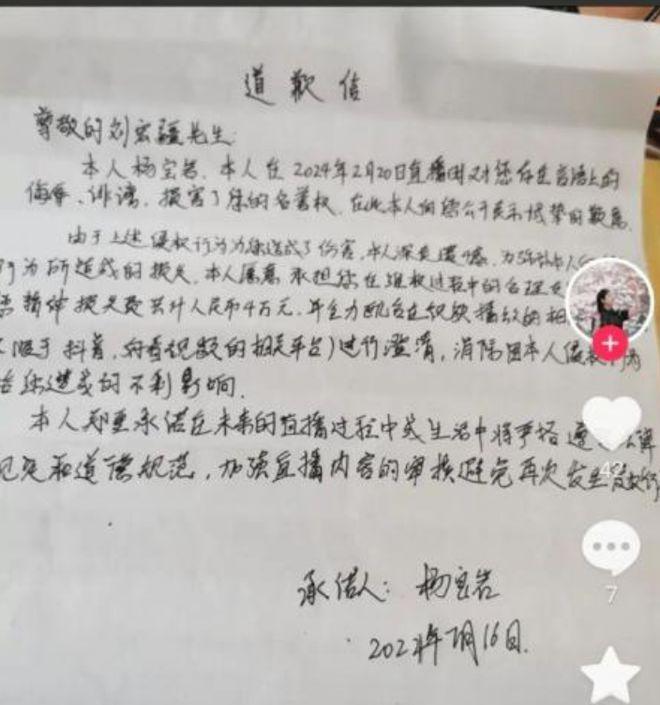 道歉信
尊敬的刘宏疆先生:
本人杨宝岩,本人在2024年2月20日直播时对您存在言语上的
侮辱、诽谤,损害了您的名誉权,在此本人向您公开表示诚挚的歉意.
由于上述侵权行为为您造成了伤害,本人深表遗憾,为弥补本人
行为所造成的损失,本人愿意承担您在维权过程中的合理
精神损失费共计人民币4万元,并全力配合在视频播放的相
限于抖音,西瓜视频的相关平台)进行澄清,消除因本人侵权行为
给您造成的不利影响.
本人郑重承诺在未来的直播过程中或生活中将严格遵
和道德规范,加强直播内容的审核避免再次发生
承诺人:杨宝岩
2024年7月16日.
7